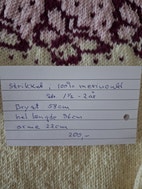 Strikket i 100% merinoull
Str 1½ - 2 år
Bryst 58cm
hel lengde 36cm
erme 22cm
200,-